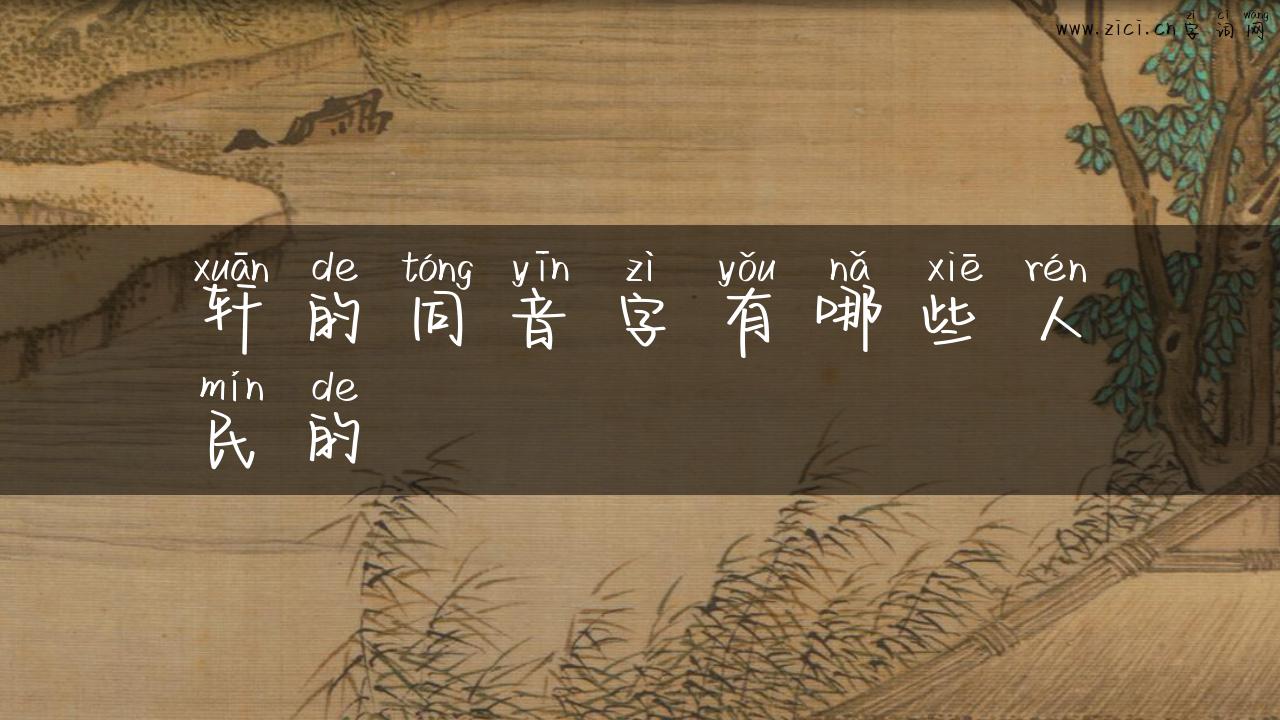 zì cí wǎng
www.zici.cn字词网
xuān de tóng yīn zì yǒu nǎ xiē rén
轩的同音字有哪些人
mín de
民的